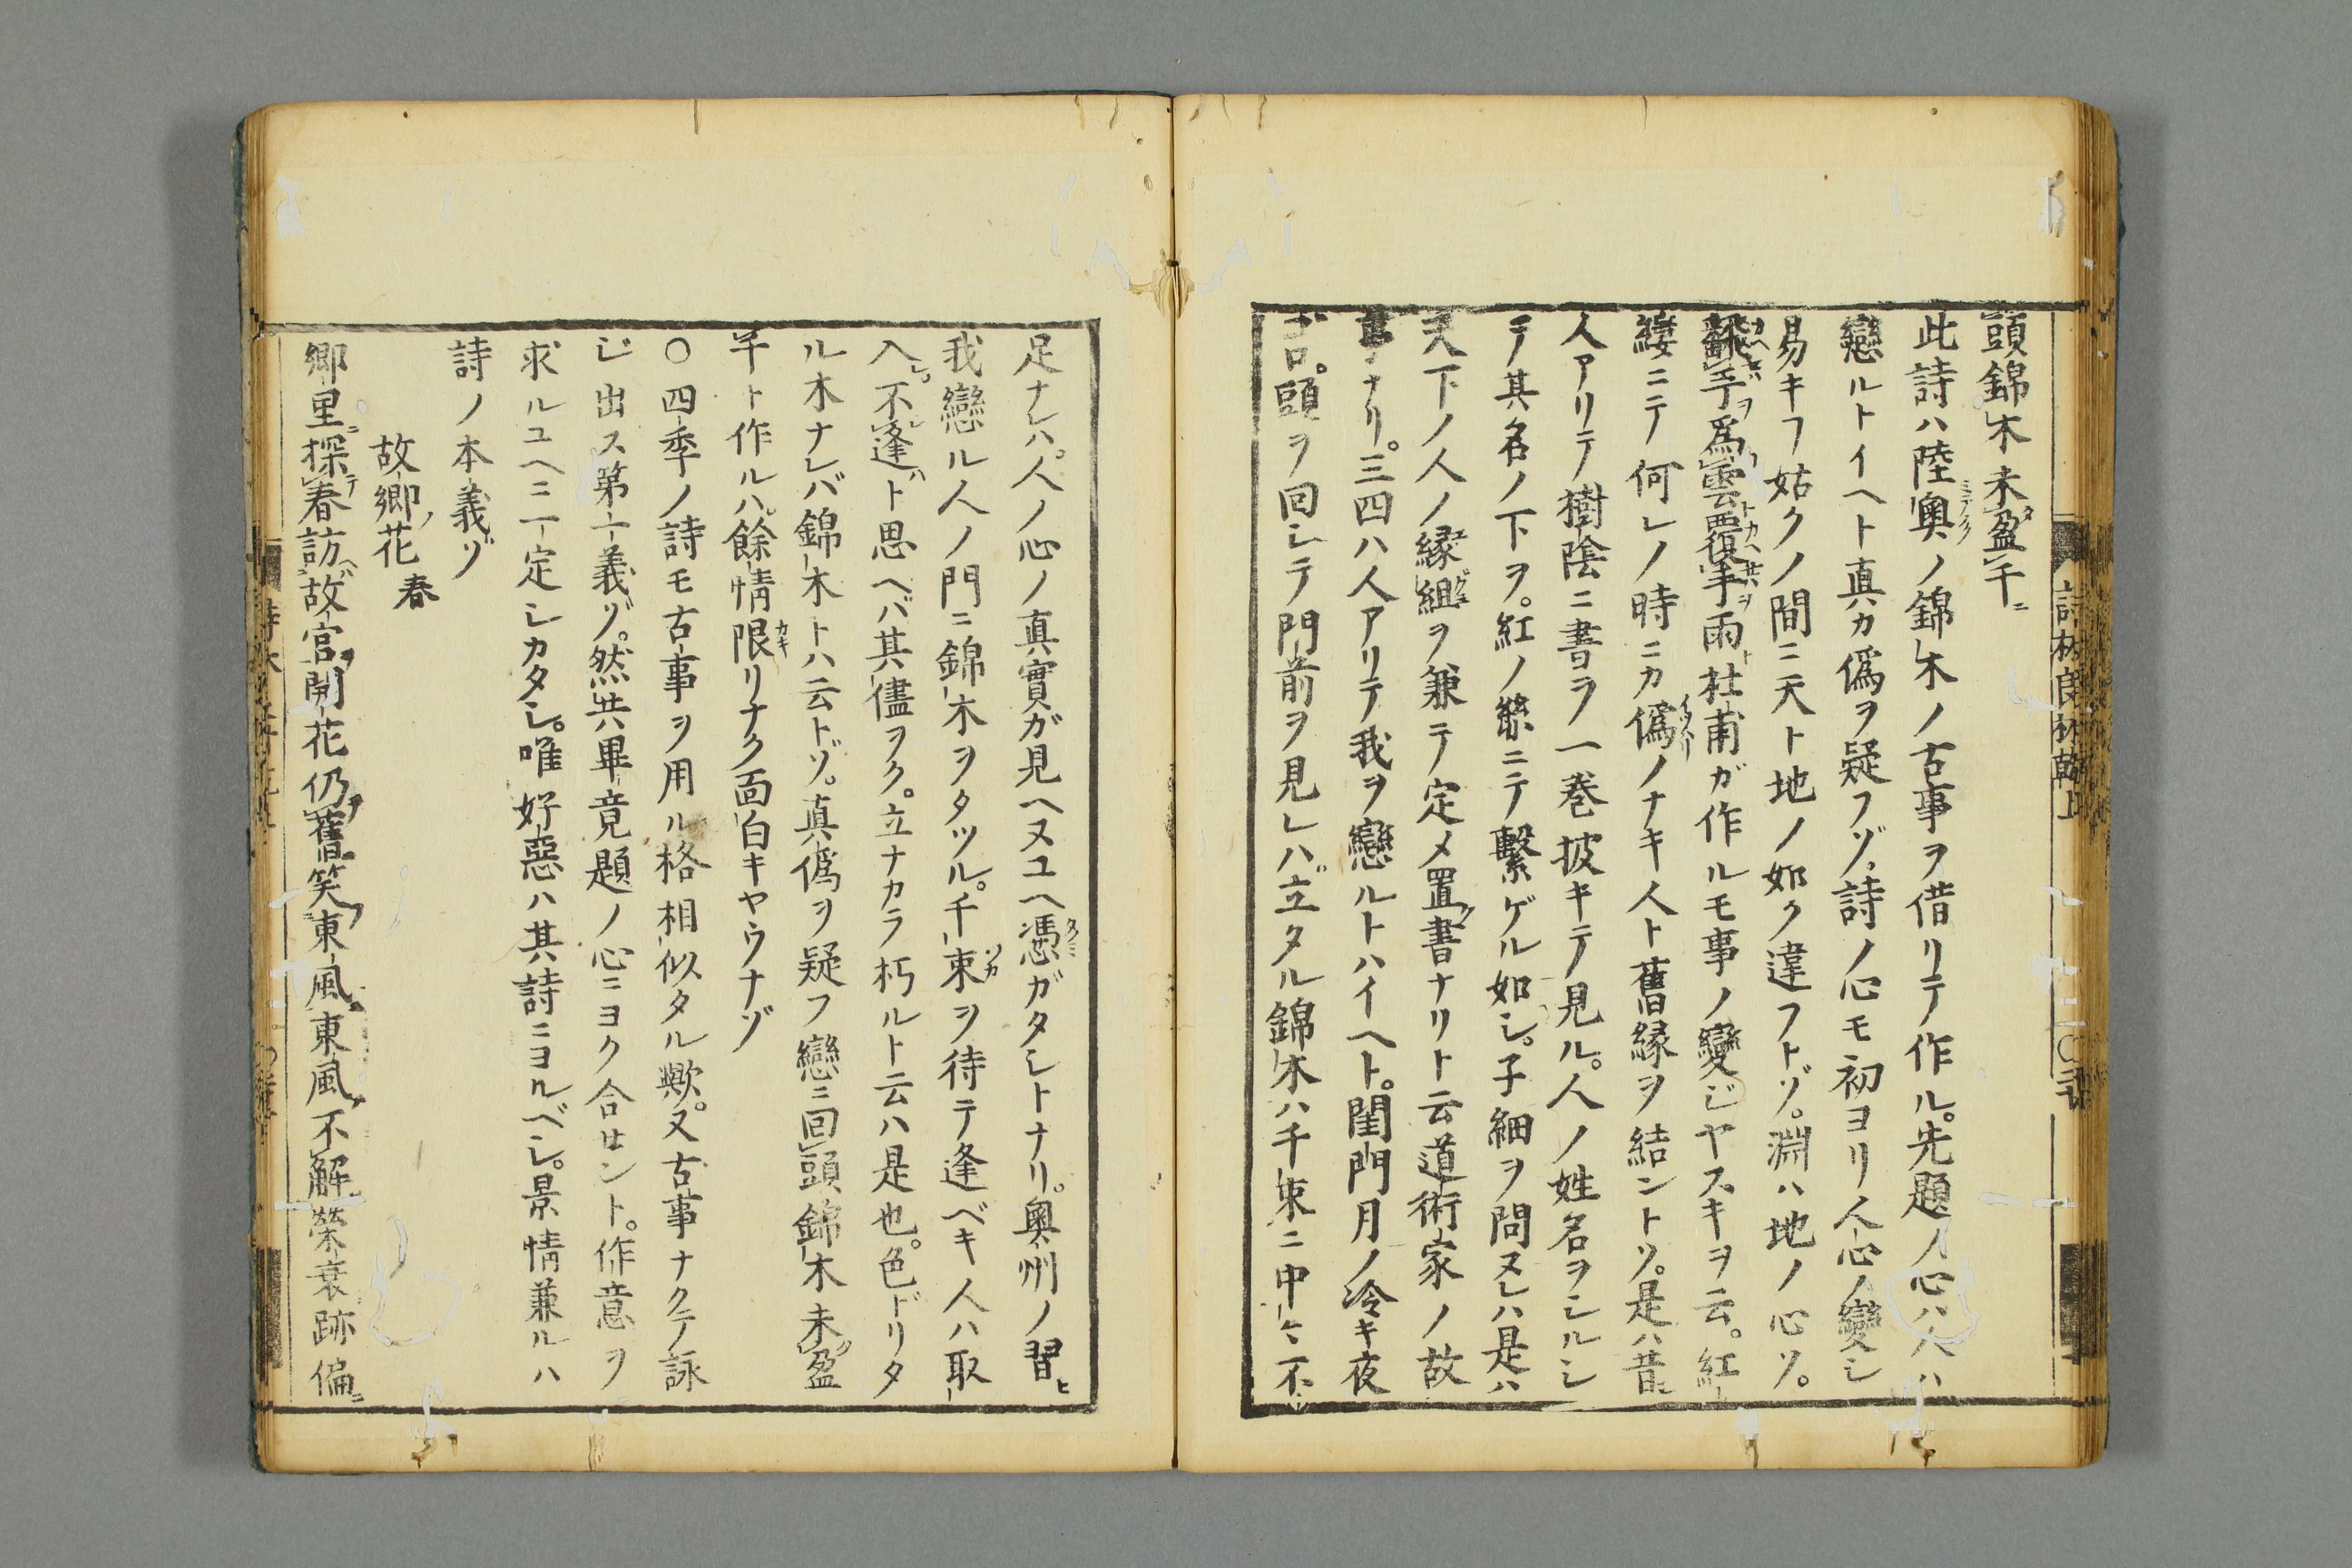 頭錦木未盈千
此詩ハ陸奥ノ錦木ノ古事ヲ借リテ作ル。先題ノ心ハ人ハ
戀ルトイヘト真カ偽ヲ疑フゾ。詩ノ心モ初ヨリ人心ノ變シ
易キフ姑クノ間ニ天ト地ノ如ク違フトゾ。淵ハ地ノ心ソ。
飜手為雲覆手雨ト杜甫ガ作ルモ事ノ變ジヤスキヲ云。紅
縷ニテ何レノ時ニカ偽ノナキ人ト舊縁ヲ結ントソ。是ハ昔
人アリテ樹陰ニ書ヲ一巻披キテ見ル。人ノ姓名ヲシルシ
テ其名ノ下ヲ。紅ノ縣ニテ繋ゲル如シ。子細ヲ問ヌレハ是ハ
天下ノ人ノ縁組ヲ兼テ定メ置書ナリト云道術家ノ故
事ナリ。三四ハ人アリテ我ヲ戀ルトハイヘト。閨門月ノ冷キ夜
頭ヲ回シテ門前ヲ見レハ。立タル錦木ハ千束ニ中々不
足ナレハ。人ノ心ノ真實ガ見ヘヌユヘ憑ガタシトナリ。奥州ノ習ヒ
我戀ル人ノ門ニ錦木ヲタツル。千束ヲ待テ逢ベキ人ハ取
入レ。不逢ト思ヘバ其儘ヲク。立ナカラ朽ルト云ハ是也。色ドリタ
ル木ナレバ錦木トハ云トゾ。真偽ヲ疑フ戀ニ回頭錦木未盈
千ト作ルハ。餘情限リナク面白キヤウナゾ
○四季ノ詩モ古事ヲ用ル格相似タル歟。又古事ナクテ詠
ジ出ス第一義ゾ。然共畢竟題ノ心ニヨク合セント。作意ヲ
求ルユヘニ一定シカタシ。唯好惡ハ其詩ニヨルベシ。景情兼ルハ
詩ノ本義ゾ
故郷ノ花 春
郷里探春訪故宮開花仍舊笑東風東風不解榮衰跡偏